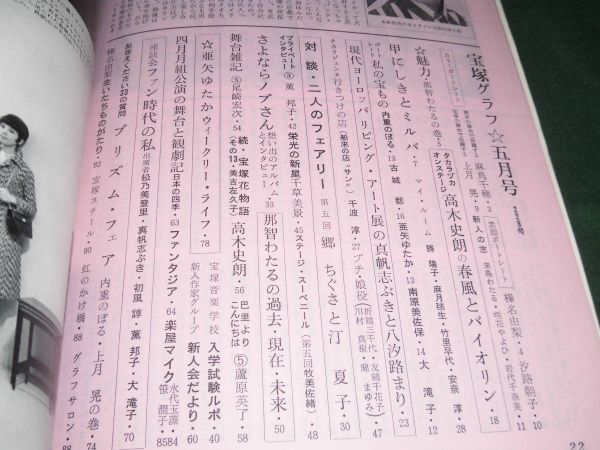 宝塚グラフ☆五月号
カラーポートレート
麻鳥千穂・3
上月 晃・9
素顔ポートレート
新人の窓
榛名由梨・4
汐路朝子・10
岩代千奈美・11
☆魅力・那智わたるの巻・5
タカラヅカオンステージ
高木史朗の春風とバイオリン・18
甲にしきとミルバ・7
マイ・ルーム
畷 陽子・麻月毬生・竹里早代・安奈 淳・28
私の宝もの
内重のぼる・13
古城 都・16
亜矢ゆたか・13
南原美佐保・14
大 滝子・12
現代ヨーロッパリビング・アート展の真帆志ぶきと八汐路まり・23
タカラジェンヌ行きつけの店(舶来の店“サン”)
千波 淳・27
プチ・娘役
47
対談・二人のフェアリー
第五回
郷 ちぐさと汀 夏子・30
プライベートインタビュー③
薫 邦子・42
栄光の新星
千草美景・45
ステージ・スーベニール(第五回牧美佐緒)・48
さよならノブさん
想い出のアルバム・33
インタビュー
那智わたるの過去・現在・未来・50
舞台雑記⑤
尾崎宏次・54
続・宝塚花物語(その13・美吉左久子)
高木史朗・56
巴里よりこんにちは⑤
蘆原英了・58
☆亜矢ゆたかウィークリー・ライフ・78
宝塚音楽学校
入学試験ルポ・60
四月月組公演の舞台と観劇記
日本の四季・63
ファンタジア・64
新人作家グループ
新人会だより・40
楽屋マイク
水代玉藻・84
笹 潤子・85
座談会
ファン時代の私
出席者
松乃美登里・真帆志ぶき・初風 諄・薫 邦子・大 滝子・70
お答えください33の質問
プリズム・フェア
内重のぼる・上月 晃の巻・74
榛名由梨生いたちものがたり・82
宝塚スチール・90
虹のかけ橋・88
グラフサロン・88
22